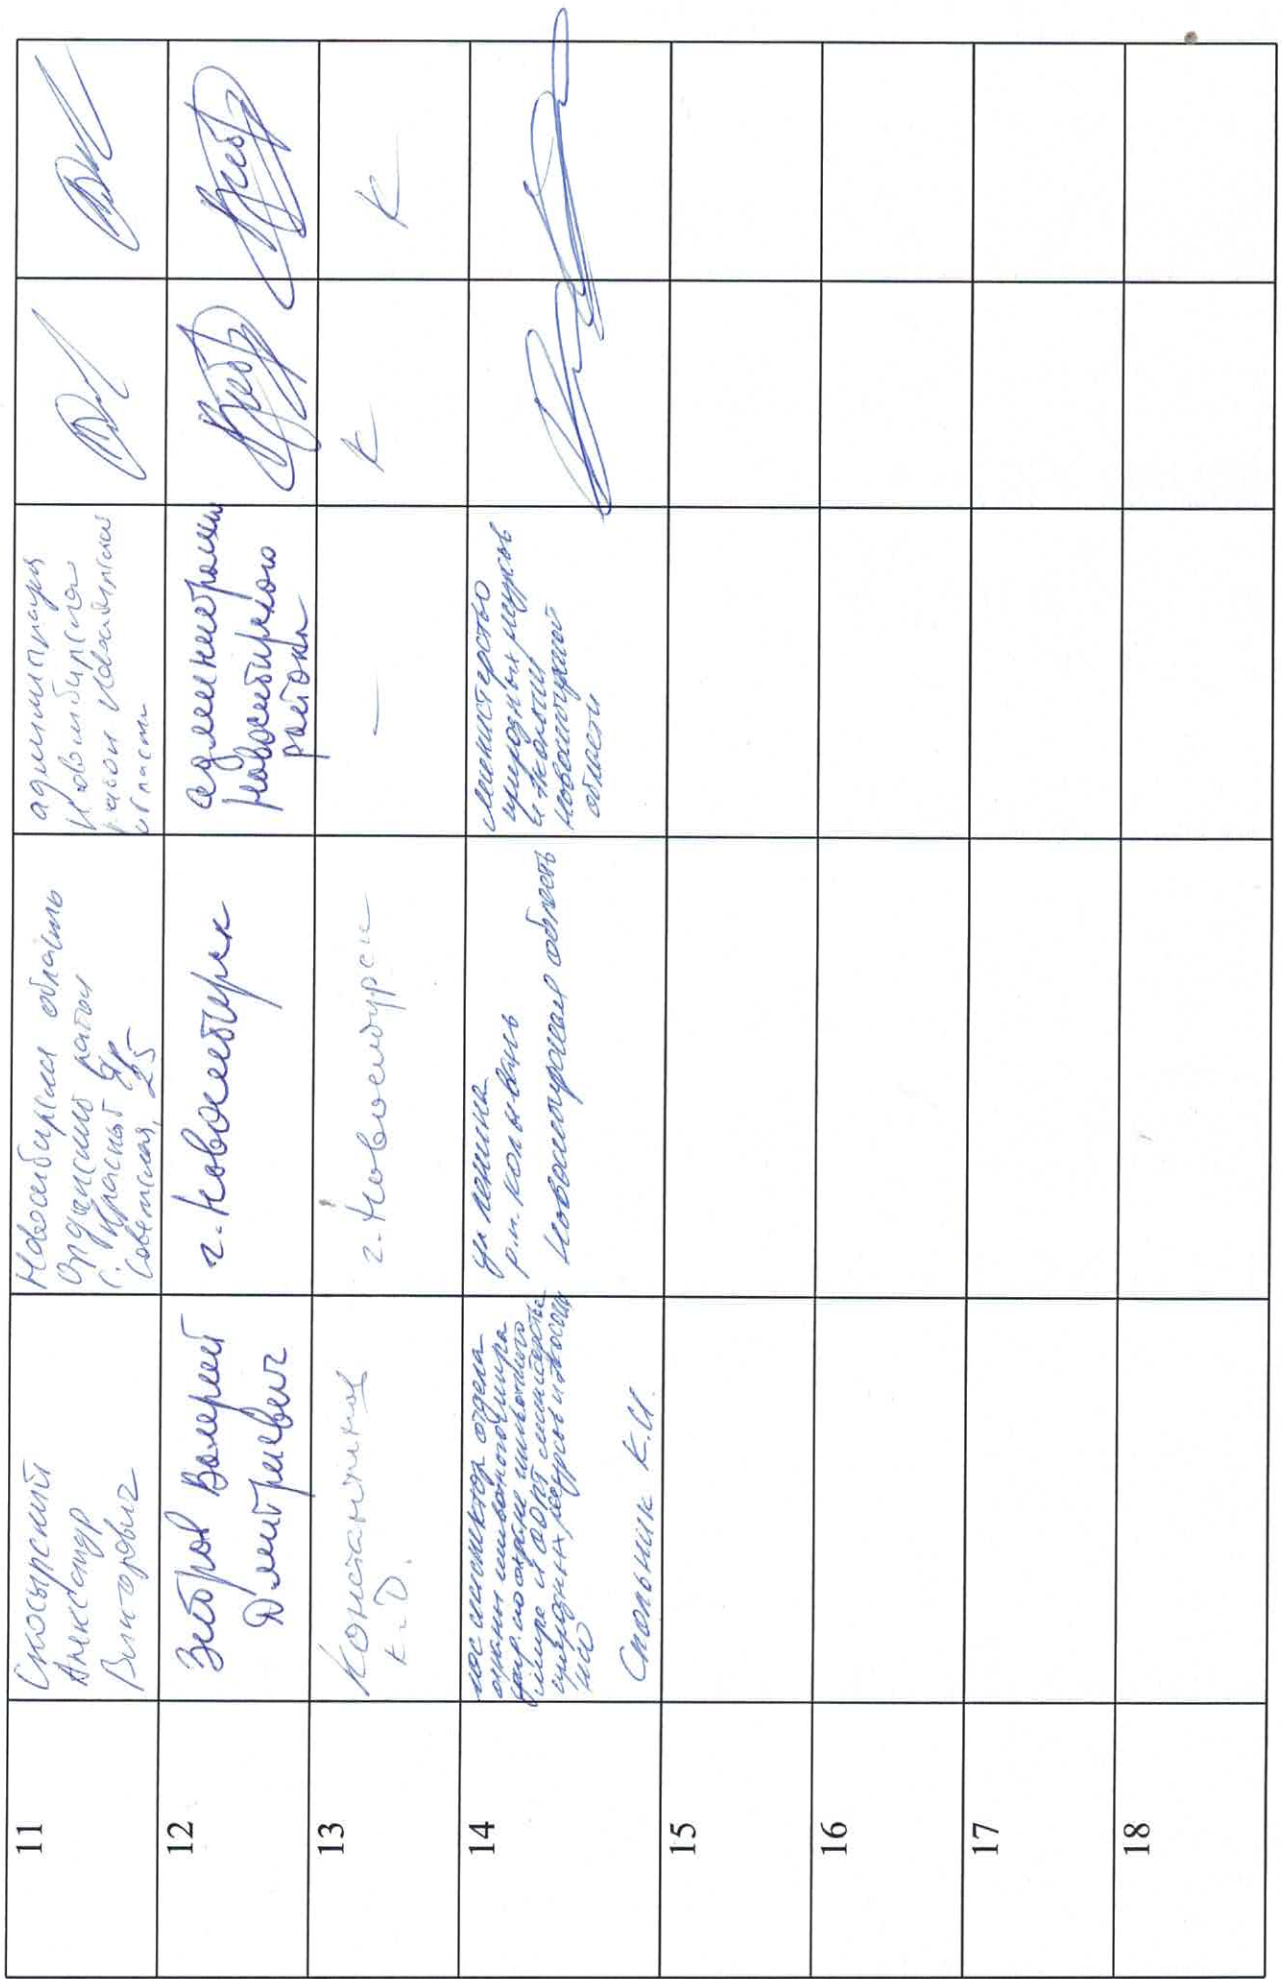 11
Скосырский
Александр
Викторович
Новосибирская область
Ордынский район
с. Красный Яр
Советская, 25
администрация
Новосибирского
района Новосибирской
области
12
Зибров Валерий
Дмитриевич
г. Новосибирск
администрация
Новосибирского
района
13
Константинов
К.Д.
г. Новосибирск
—
К
К
14
госинспектор отдела
охраны животного мира
упр. по охране животного
мира и ООПТ министерства
природных ресурсов и экологии
НСО
Смольник К.И.
ул Ленина
р.п. Колывань
Новосибирская область
министерство
природных ресурсов
и экологии
Новосибирской
области
15
16
17
18